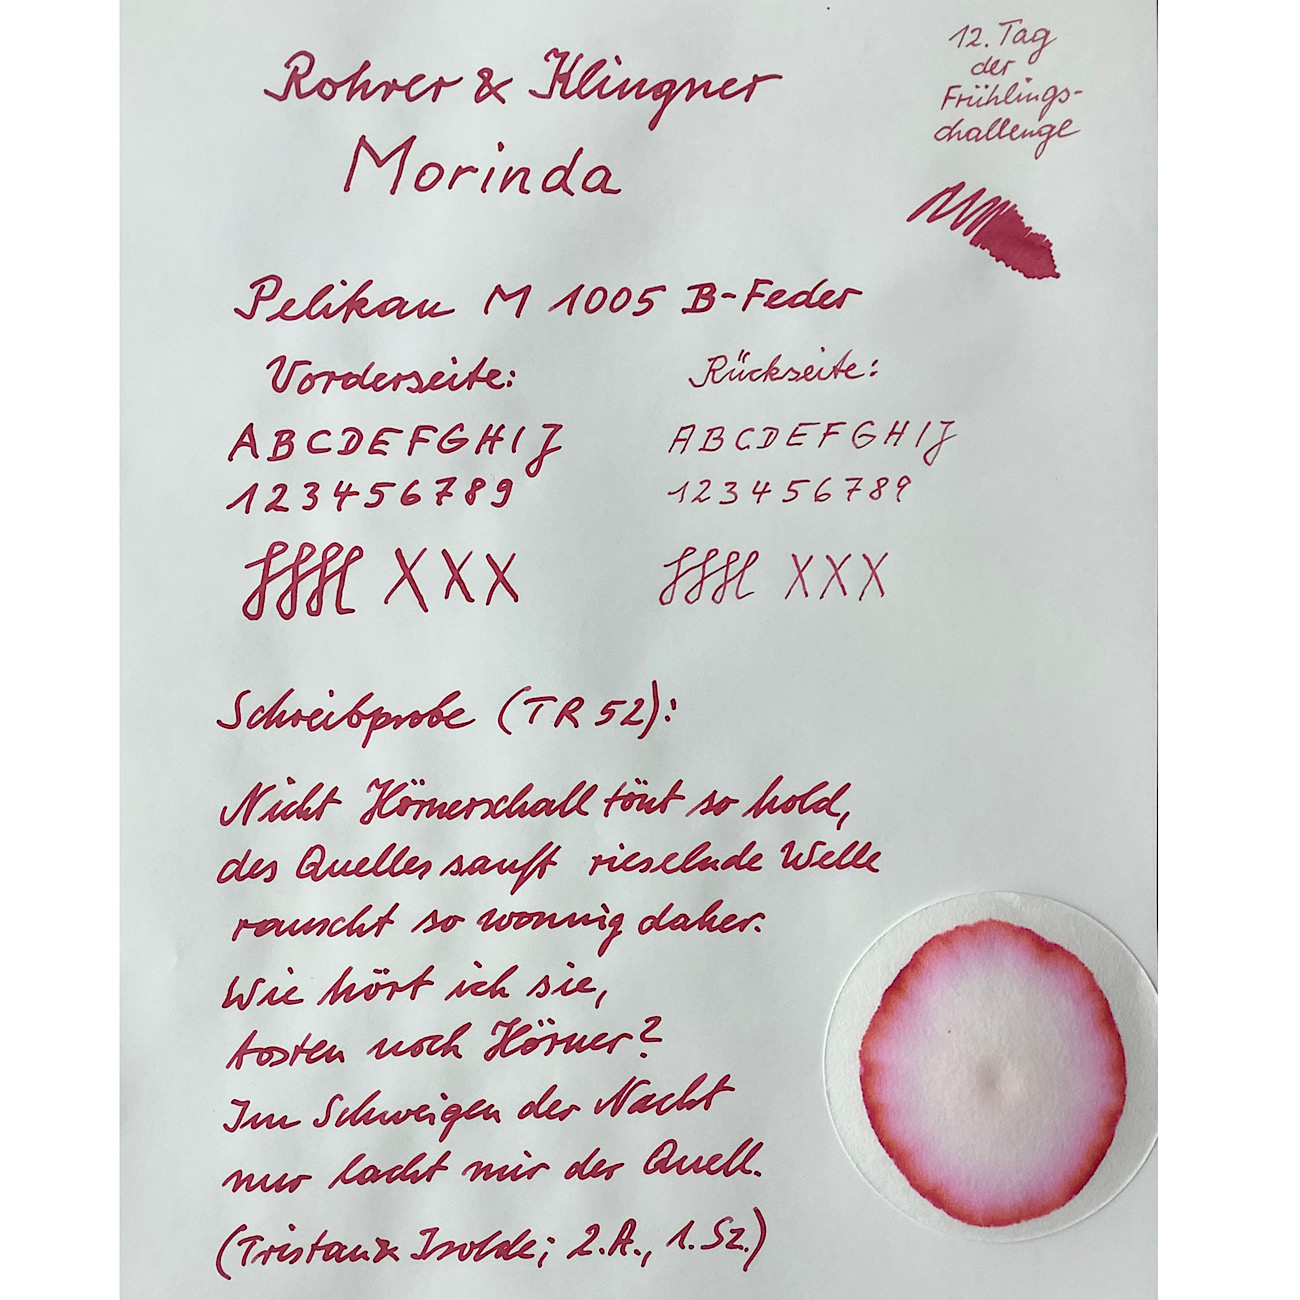 Rohrer & Klingner
Morinda
12. Tag
der
Frühlings-
challenge
Pelikan M 1005 B-Feder
Vorderseite:
ABCDEFGHIJ
123456789
XXX
Rückseite:
ABCDEFGHIJ
123456789
XXX
Schreibprobe (TR 52):
Nicht Hörnerschall tönt so hold,
des Quelles sanft rieselnde Welle
rauscht so wonnig daher.
Wie hört ich sie,
tosten noch Hörner?
Im Schweigen der Nacht
nur lacht mir der Quell.
(Tristan & Isolde; 2.A., 1.Sz.)